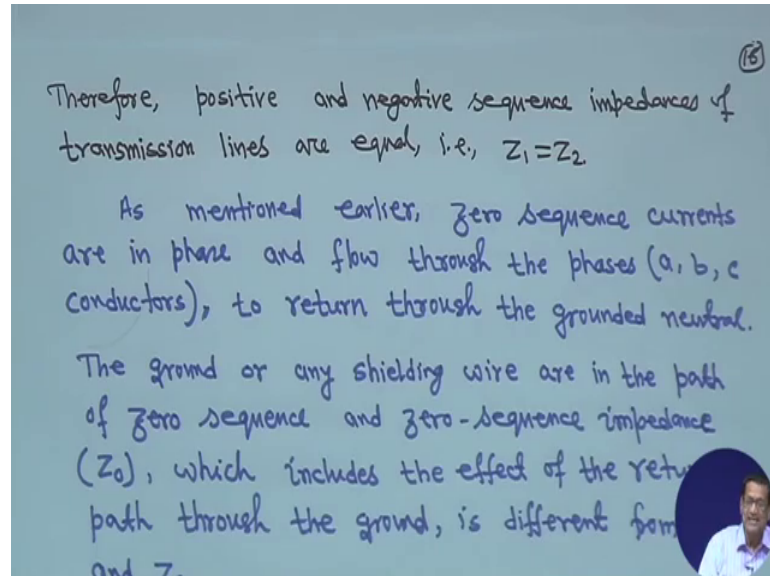 16
Therefore, positive and negative sequence impedances of
transmission lines are equal, i.e., Z₁=Z₂.
As mentioned earlier, zero sequence currents
are in phase and flow through the phases (a, b, c
conductors), to return through the grounded neutral.
The ground or any shielding wire are in the path
of zero sequence and zero-sequence impedance
(Z₀), which includes the effect of the retu
path through the ground, is different from
and Z